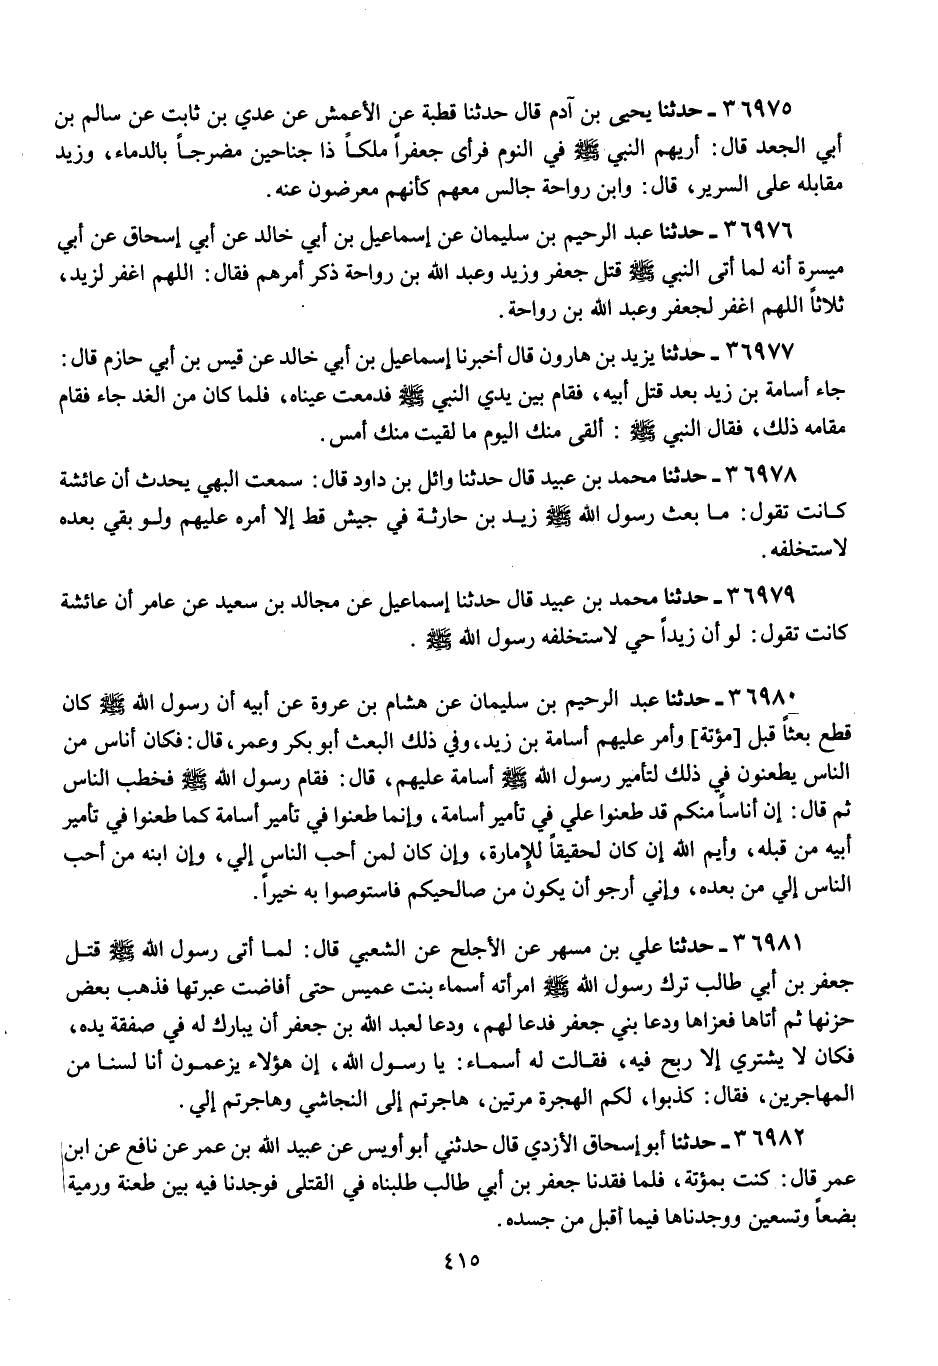 ٣٦٩٧٥ ـ حدثنا يحيى بن آدم قال حدثنا قطبة عن الأعمش عن عدي بن ثابت عن سالم بن
أبي الجعد قال: أريهم النبي ﷺ في النوم فرأى جعفراً ملكاً ذا جناحين مضرجاً بالدماء، وزيد
مقابله على السرير، قال: وابن رواحة جالس معهم كأنهم معرضون عنه.
٣٦٩٧٦ ـ حدثنا عبد الرحيم بن سليمان عن إسماعيل بن أبي خالد عن أبي إسحاق عن أبي
ميسرة أنه لما أتى النبي ﷺ قتل جعفر وزيد وعبد الله بن رواحة ذكر أمرهم فقال: اللهم اغفر لزيد،
ثلاثاً اللهم اغفر لجعفر وعبد الله بن رواحة.
٣٦٩٧٧ ـ حدثنا يزيد بن هارون قال أخبرنا إسماعيل بن أبي خالد عن قيس بن أبي حازم قال:
جاء أسامة بن زيد بعد قتل أبيه، فقام بين يدي النبي ﷺ فدمعت عيناه، فلما كان من الغد جاء فقام
مقامه ذلك، فقال النبي ﷺ : ألقى منك اليوم ما لقيت منك أمس.
٣٦٩٧٨ ـ حدثنا محمد بن عبيد قال حدثنا وائل بن داود قال: سمعت البهي يحدث أن عائشة
كانت تقول: ما بعث رسول الله ﷺ زيد بن حارثة في جيش قط إلا أمره عليهم ولو بقي بعده
لاستخلفه.
٣٦٩٧٩ ـ حدثنا محمد بن عبيد قال حدثنا إسماعيل عن مجالد بن سعيد عن عامر أن عائشة
كانت تقول: لو أن زيداً حي لاستخلفه رسول الله ﷺ .
٣٦٩٨٠ ـ حدثنا عبد الرحيم بن سليمان عن هشام بن عروة عن أبيه أن رسول الله ﷺ كان
قطع بعثاً قبل [مؤتة] وأمر عليهم أسامة بن زيد، وفي ذلك البعث أبو بكر وعمر، قال: فكان أناس من
الناس يطعنون في ذلك لتأمير رسول الله ﷺ أسامة عليهم، قال: فقام رسول الله ﷺ فخطب الناس
ثم قال: إن أناساً منكم قد طعنوا علي في تأمير أسامة، وإنما طعنوا في تأمير أسامة كما طعنوا في تأمير
أبيه من قبله، وأيم الله إن كان لحقيقاً للإمارة، وإن كان لمن أحب الناس إلي، وإن ابنه من أحب
الناس إلي من بعده، وإني أرجو أن يكون من صالحيكم فاستوصوا به خيراً.
٣٦٩٨١ ـ حدثنا علي بن مسهر عن الأجلح عن الشعبي قال: لما أتى رسول الله ﷺ قتل
جعفر بن أبي طالب ترك رسول الله ﷺ امرأته أسماء بنت عميس حتى أفاضت عبرتها فذهب بعض
حزنها ثم أتاها فعزاها ودعا بني جعفر فدعا لهم، ودعا لعبد الله بن جعفر أن يبارك له في صفقة يده،
فكان لا يشتري إلا ربح فيه، فقالت له أسماء: يا رسول الله، إن هؤلاء يزعمون أنا لسنا من
المهاجرين، فقال: كذبوا، لكم الهجرة مرتين، هاجرتم إلى النجاشي وهاجرتم إلي.
٣٦٩٨٢ ـ حدثنا أبو إسحاق الأزدي قال حدثني أبو أويس عن عبيد الله بن عمر عن نافع عن ابن
عمر قال: كنت بمؤتة، فلما فقدنا جعفر بن أبي طالب طلبناه في القتلى فوجدنا فيه بين طعنة ورمية
بضعاً وتسعين ووجدناها فيما أقبل من جسده.
٤١٥